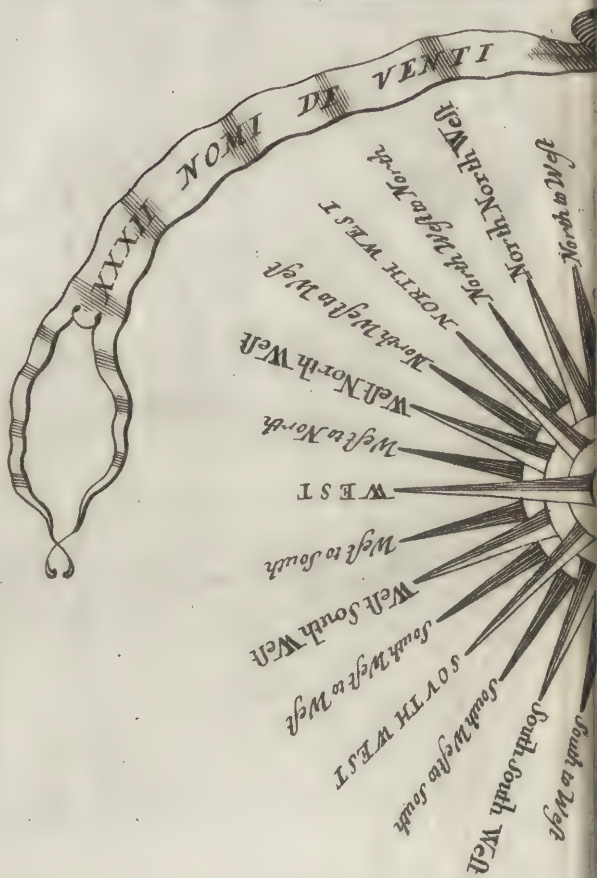 XXXII NOMI DE VENTI
North to Weſt
North North Weſt
North Weſt to North
NORTH WEST
North Weſt to Weſt
Weſt North Weſt
Weſt to North
WEST
Weſt to South
Weſt South Weſt
South Weſt to Weſt
SOVTH WEST
South Weſt to South
South South Weſt
South to Weſt